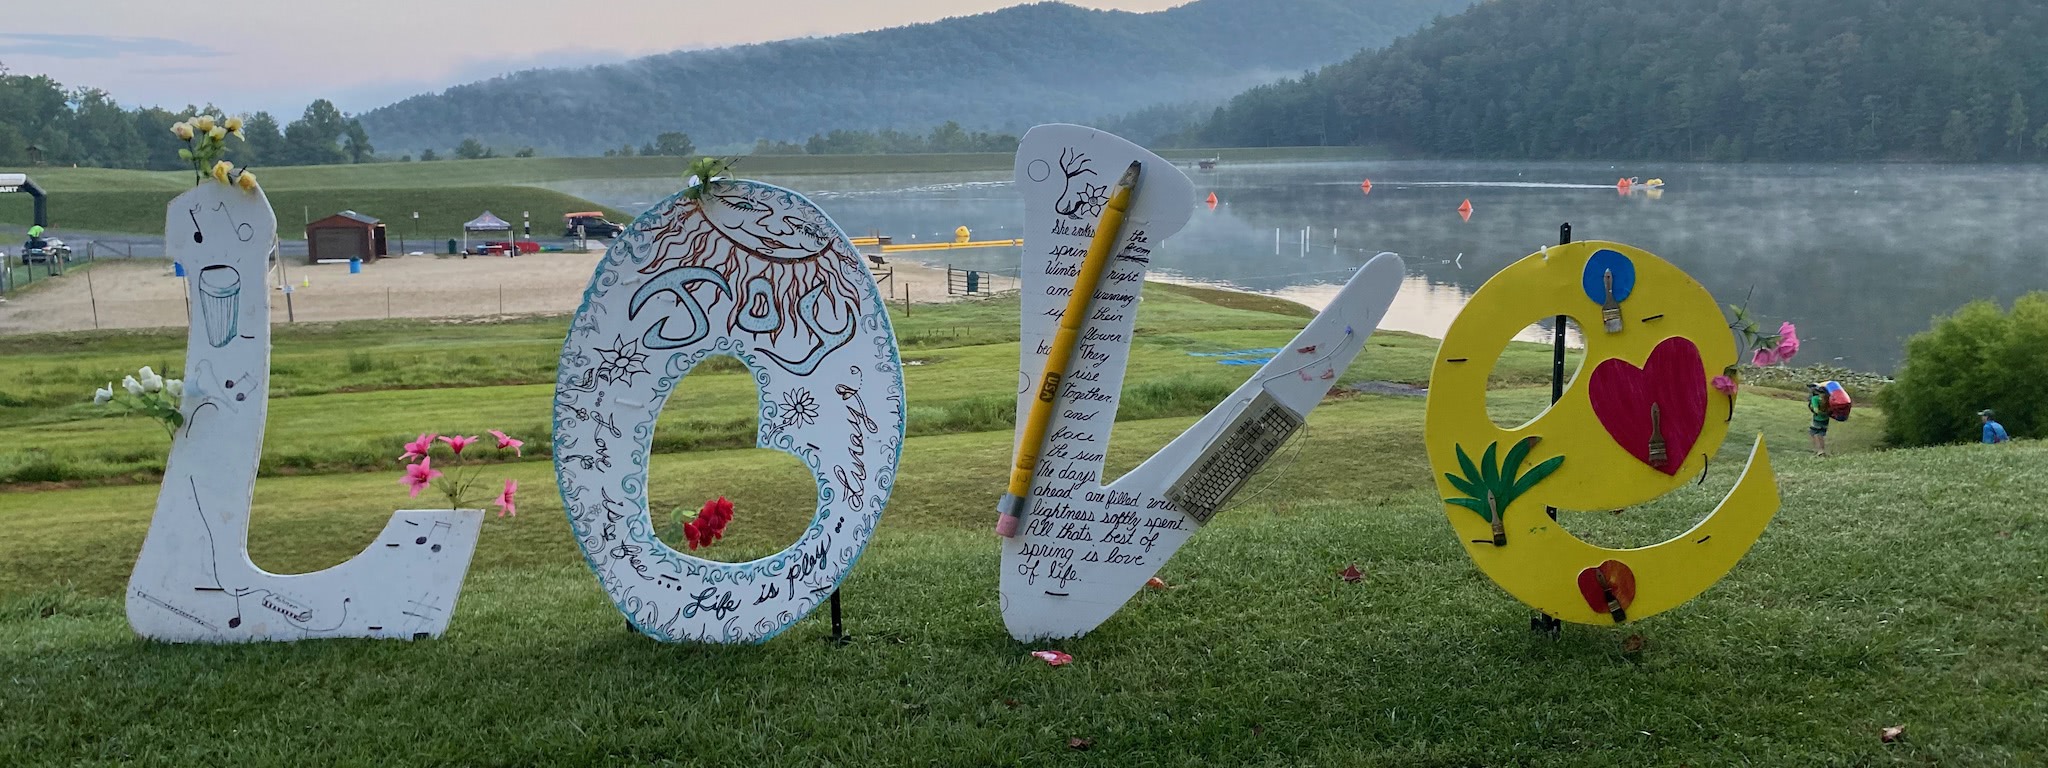 ART
L
o
V
e
JOY
Love
Lunasy
Life is play
She wakes the
spring from
Winter right
and warming
up their
flower
They
rise
Together,
and
face
the sun.
The days
ahead are filled with
lightness softly spent.
All that's best of
spring is love
of life.
USA